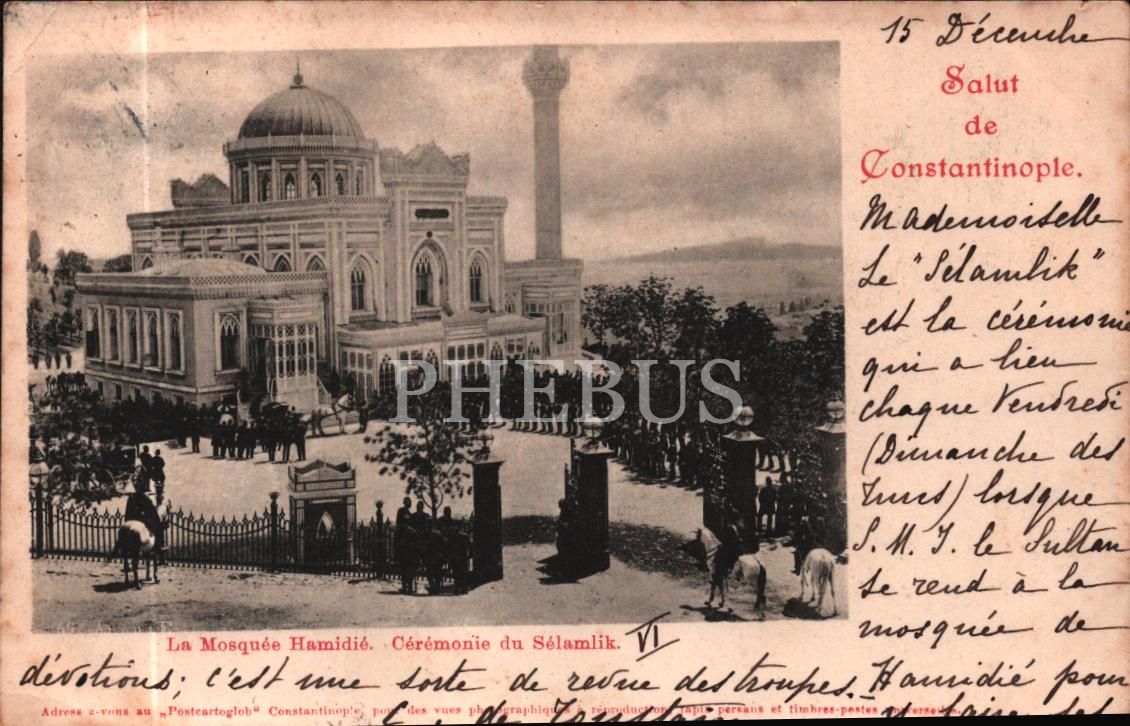 15 Décembre
Salut
de
Constantinople.
Mademoiselle
Le "Sélamlik"
est la cérémonie
qui a lieu
chaque Vendredi
(Dimanche des
Turcs) lorsque
S. M. I. le Sultan
se rend à la
mosquée de
Hamidié pour
PHEBUS
La Mosquée Hamidié. Cérémonie du Sélamlik.
VI
dévotions; c'est une sorte de revue des troupes.
Adress z-vous au „Postcartoglob“ Constantinople, pour des vues photographiques à reproduction, tapis persans et timbres-postes universelles.